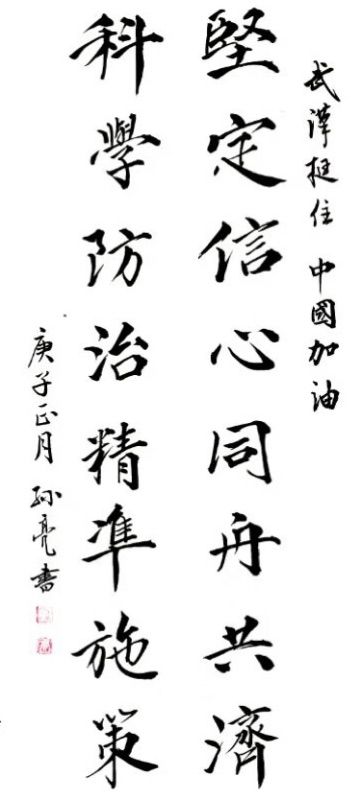 武漢挺住 中國加油
堅定信心同舟共濟
科學防治精準施策
庚子正月 孙亮書